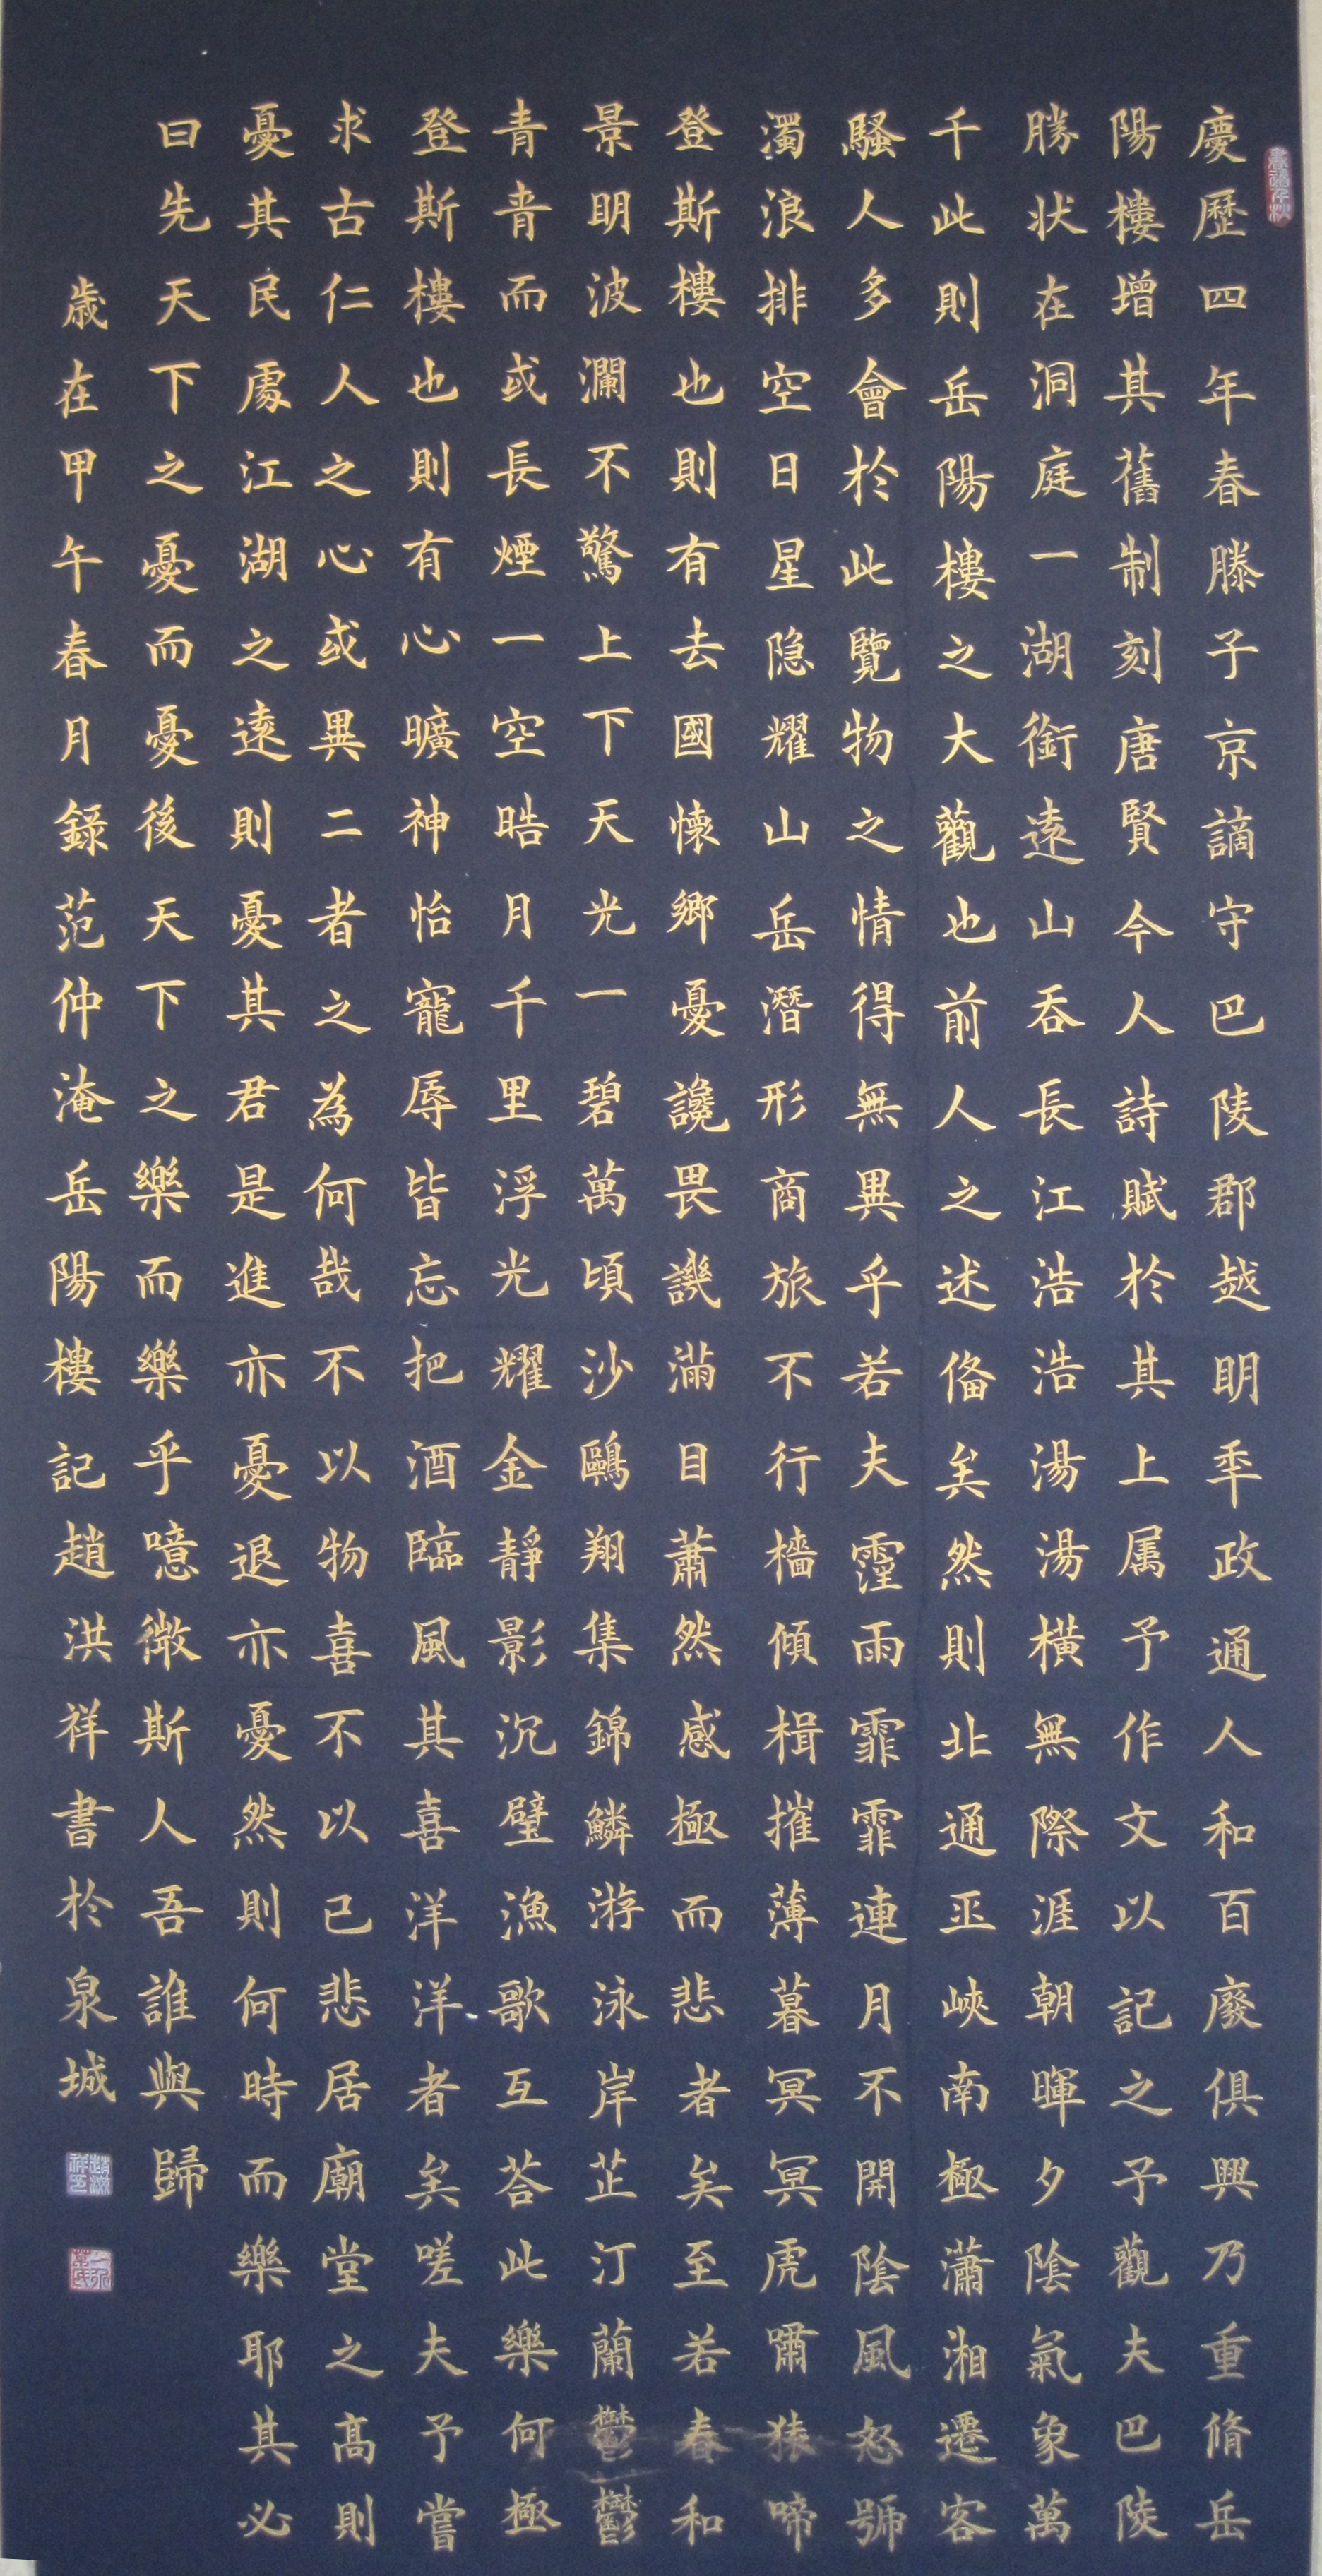 慶歷四年春滕子京謫守巴陵郡越明秊政通人和百廢俱興乃重脩岳
陽樓增其舊制刻唐賢今人詩賦於其上属予作文以記之予觀夫巴陵
勝状在洞庭一湖銜遠山吞長江浩浩湯湯橫無際涯朝暉夕陰氣象萬
千此則岳陽樓之大觀也前人之述俻矣然則北通巫峽南極瀟湘遷客
騷人多會於此覽物之情得無異乎若夫霪雨霏霏連月不開陰風怒號
濁浪排空日星隐耀山岳潛形商旅不行檣傾楫摧薄暮冥冥虎嘯猿啼
登斯樓也則有去國懷鄉憂讒畏譏滿目蕭然感極而悲者矣至若春和
景明波瀾不驚上下天光一碧萬頃沙鷗翔集錦鱗游泳岸芷汀蘭鬱鬱
青青而或長煙一空皓月千里浮光耀金靜影沉璧漁歌互荅此樂何極
登斯樓也則有心曠神怡寵辱皆忘把酒臨風其喜洋洋者矣嗟夫予嘗
求古仁人之心或異二者之為何哉不以物喜不以己悲居廟堂之高則
憂其民處江湖之遠則憂其君是進亦憂退亦憂然則何時而樂耶其必
曰先天下之憂而憂後天下之樂而樂乎噫微斯人吾誰與歸
歲在甲午春月錄范仲淹岳陽樓記趙洪祥書於泉城